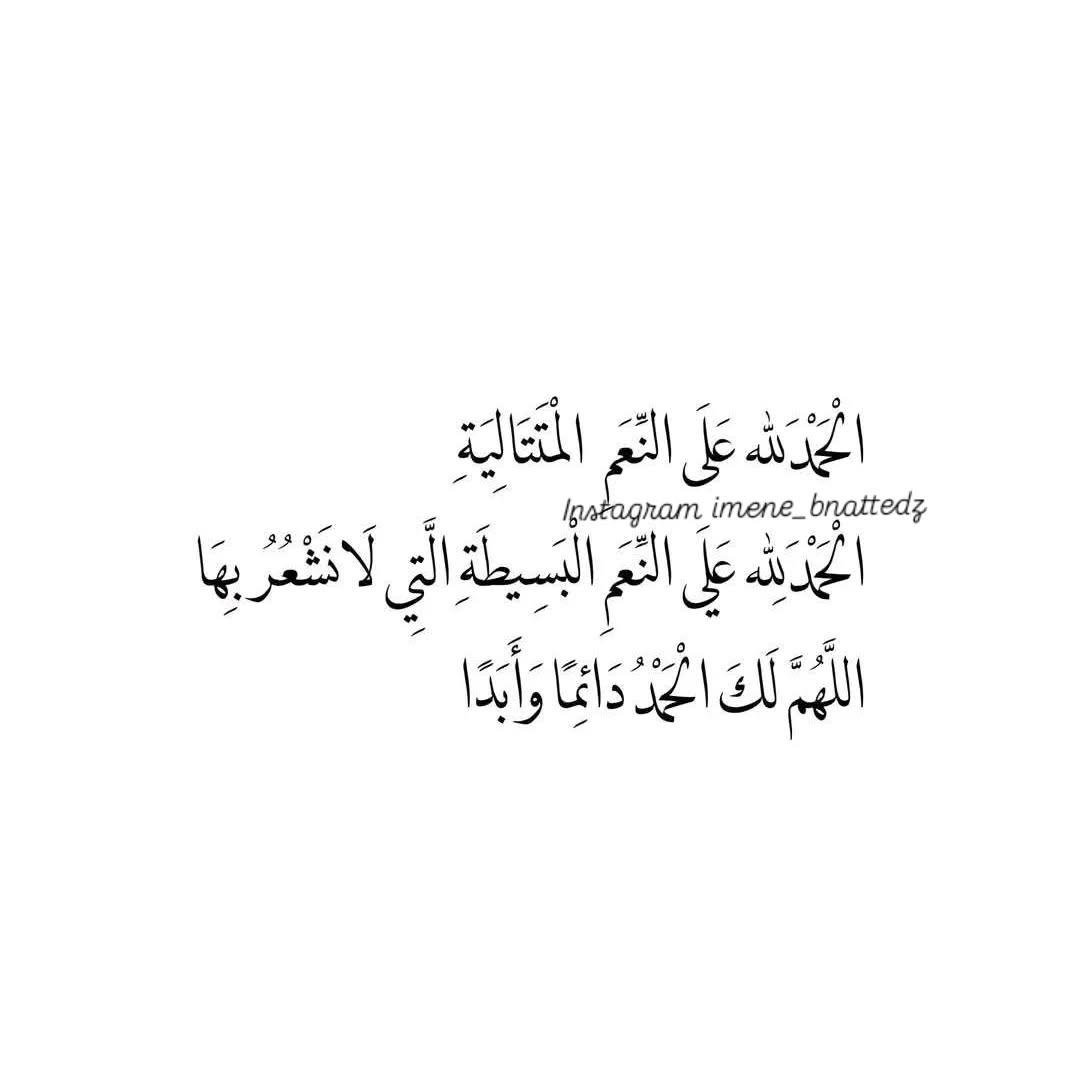 الْحَمْدَلله عَلَى النِّعَمِ الْمتَتَالِيَةِ
Instagram imene_bnattedz
الْحَمْدَلِله عَلَي النِّعَمِ الْبَسِيطَةِ الَّتِي لَا نَشْعُرُ بِهَا
اللَّهُمَّ لَكَ الْحَمْدُ دَائِمًا وَأَبَدًا